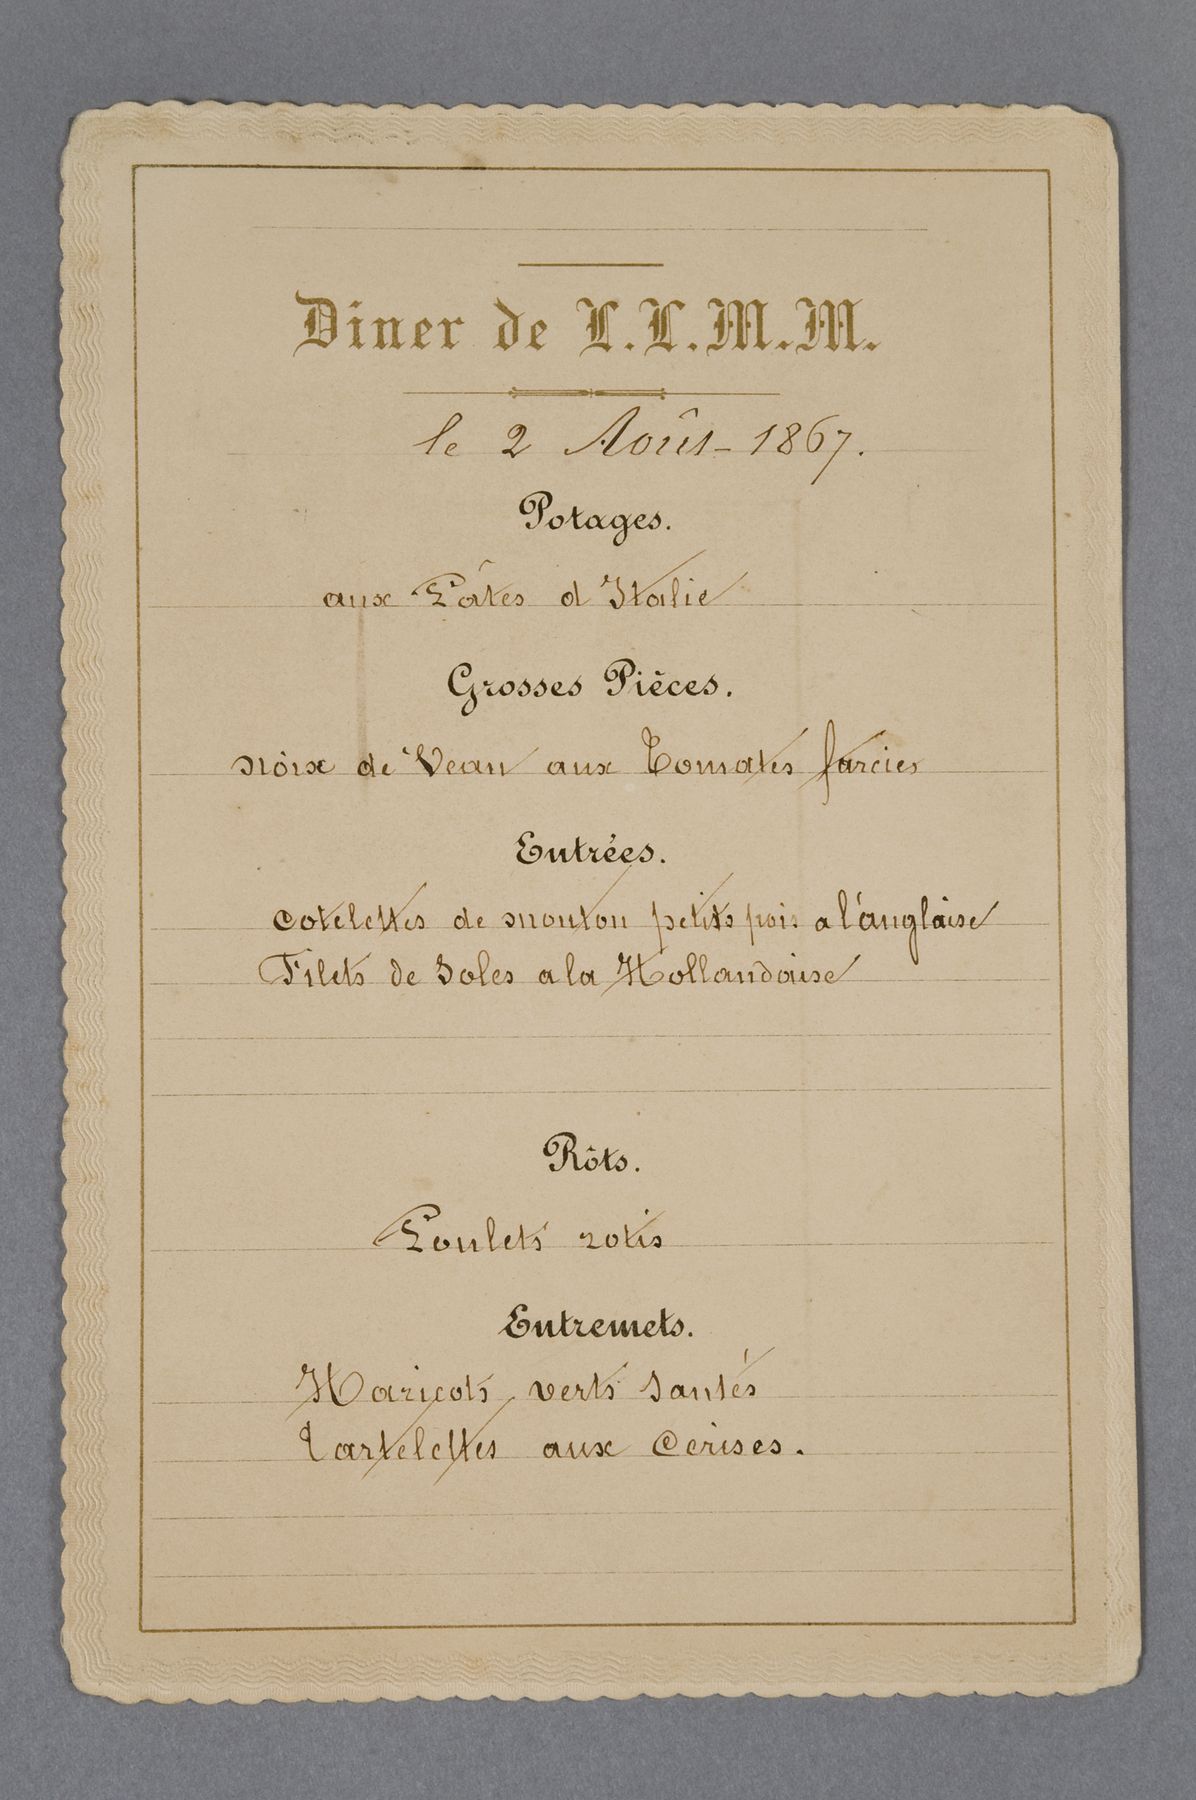 Diner de L.L.M.M.
le 2 Août 1867.
Potages.
aux Pâtes d'Italie
Grosses Pièces.
noix de Veau aux Tomates farcies
Entrées.
cotelettes de mouton petits pois a l'anglaise
Filets de Soles a la Hollandaise
Rôts.
Poulets rotis
Entremets.
Haricots verts Sautés
Tartelettes aux Cerises.